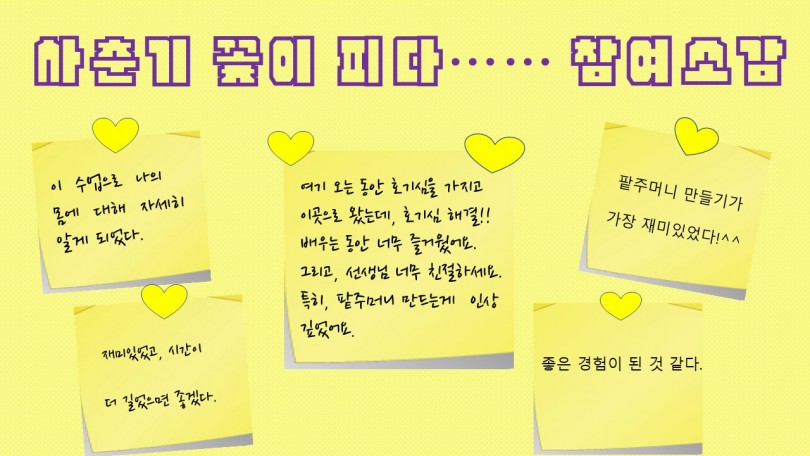 사춘기 꽃이 피다…… 참여소감
이 수업으로 나의
몸에 대해 자세히
알게 되었다.
여기 오는 동안 호기심을 가지고
이곳으로 왔는데, 호기심 해결!!
배우는 동안 너무 즐거웠어요.
그리고, 선생님 너무 친절하세요.
특히, 팥주머니 만드는게 인상
깊었어요.
팥주머니 만들기가
가장 재미있었다!^^
재미있었고, 시간이
더 길었으면 좋겠다.
좋은 경험이 된 것 같다.